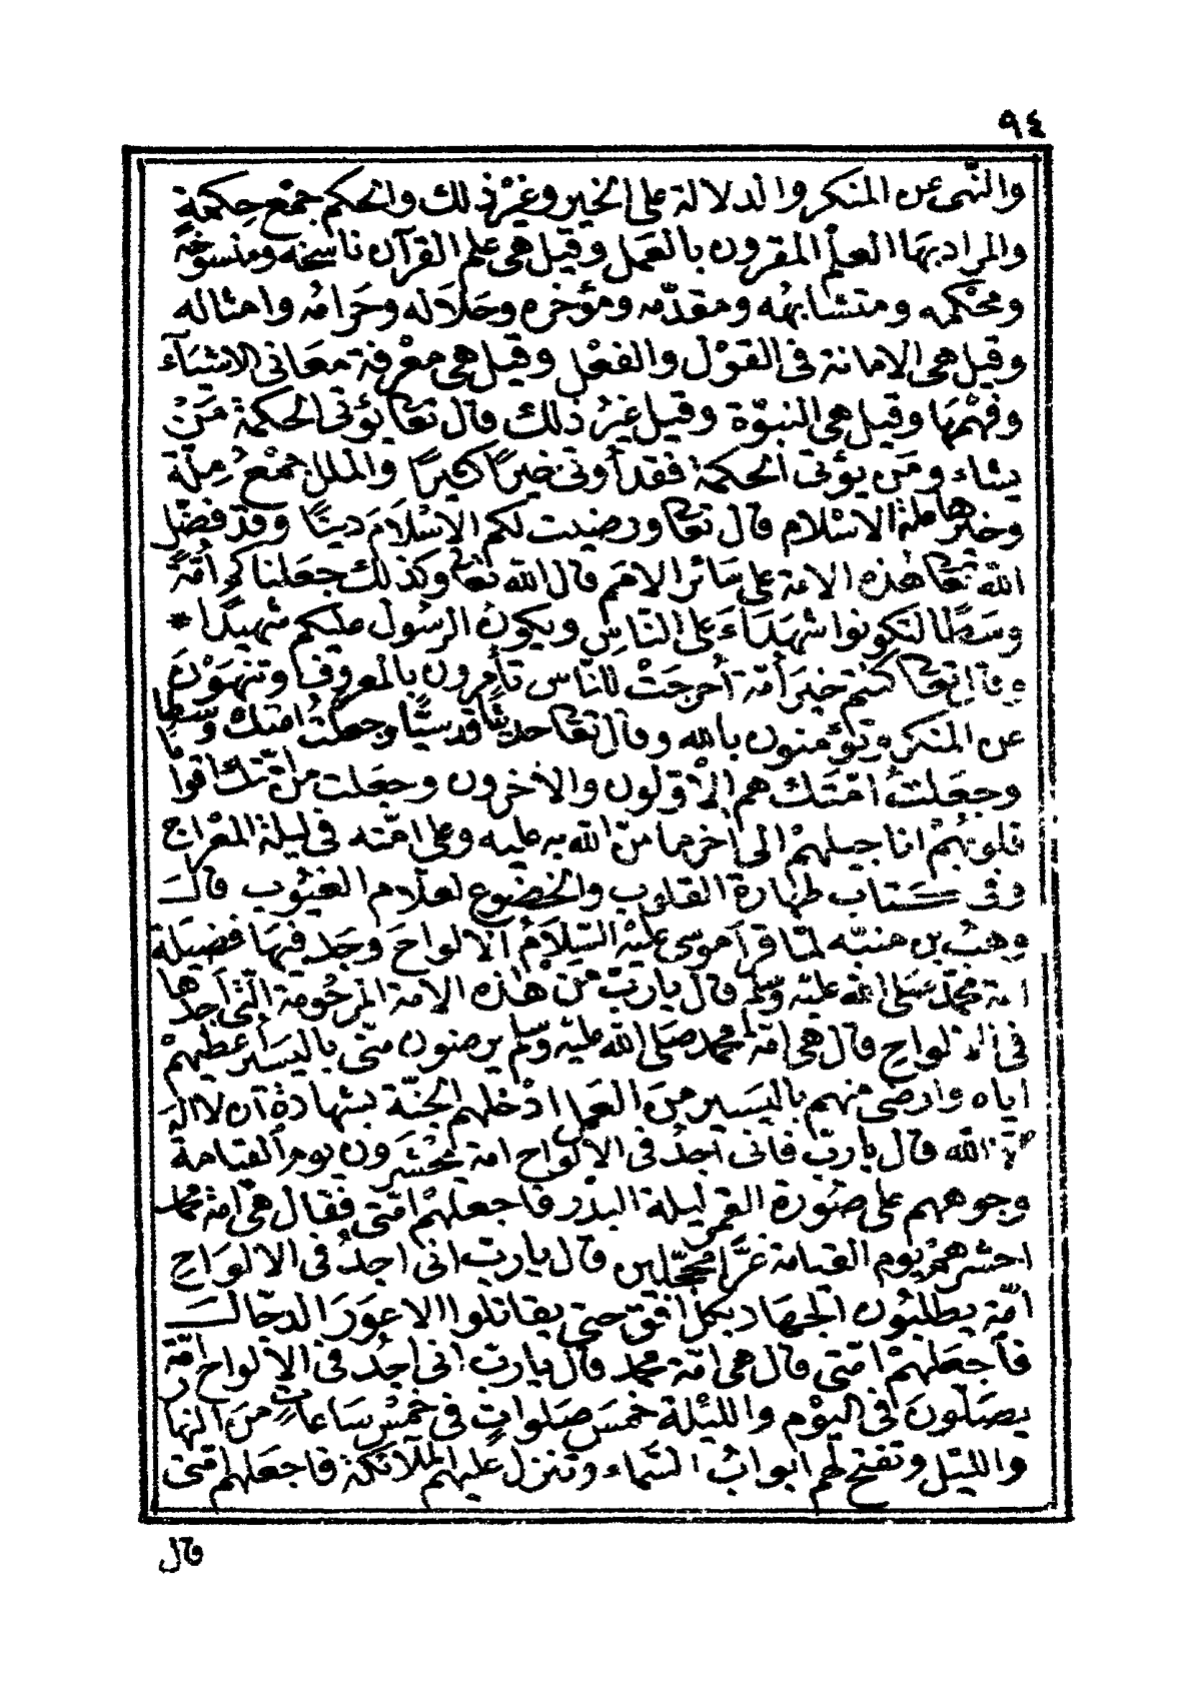 ٩٤
والنّهى عن المنكر والدلالة على الخير وغيْر ذلك والحكم جمْع حِكمةٍ
والمراد بها العلْم المقرون بالعَمل وقيل هى علم القرآن ناسخه ومنسوخهُ
ومحْكمه ومتشابهُه ومقدّمه ومؤخره وحَلاَله وحَرامُه وامثاله
وقيل هى الامانة فى القوْل والفعْل وقيل هى معْرفة معَانى الاشيَآء
وفهْمهَا وقيل هى النبوّة وقيل غيْرُ ذلك قال تعَا يؤتى الحكمة مَنْ
يشاء ومَن يؤتى الحكمة فقد أوتى خيرًا كثيرًا والملل جمْعُ مِلّة
وخيْرها ملة الاسْلام قال تعَا ورضيت لكم الاسْلاَمَ دينًا وقدْ فضّل
الله تعَا هٰذه الامة على سَائر الامَم قال الله تعَا وكذلك جعَلناكم أمّةً
وسَطًا لتكونوا شهَدَاءَ على النّاسِ ويكونُ الرسُول عليكم شهيدًا *
وقال تعَا كنتم خيرَ أمّة أخرِجَتْ للنّاس تأمرون بالمعروف وتنهَوْنَ
عن المنكر وتؤمنون بالله وقال تعَا حديثًا قدسيًّا وجعلتُ امتك وسطا
وجعَلتُ امّتَك هم الأوّلون والآخرون وجعَلت من امّتك اقوا ما
قلوبُهمْ اناجيلهمْ الى آخر ما منّ الله به عليه وعلى امّته فى ليلة المعْراج
وفى كتاب طهارة القلوب والخضوع لعلاّم الغيُوب قالَ
وهبُ بن منبّه لمّا قرأ موسى عليْه السّلاَمُ الالواحَ وجَد فيهَا فضيلة
امة محمّد صَلى الله عليْه وسَلم قال يارَبّ منْ هٰذه الامة المرْحُومة الّتى أجدها
فى الالواحِ قال هى امّة محمد صَلى الله عليْه وسَلم يرضون منّى باليَسير أعْطيهمْ
اياه وارضى منهم باليَسير منَ العمل ادْخلهم الجنّة بشهادة أن لا اله
الا الله قال يارَبّ فانى أجدُ فى الالْواح امة يحْشَرون يوم القيامة
وجوههم على صُورة القمر ليلة البدْر فاجعلهمْ امّتى فقال هى امّة محمد
احشرهمْ يوم القيامة غرًّا محجّلين قال يارَبّ انى اجدُ فى الالوَاحِ
امّة يطلبُون الجهاد بكل افق حتى يقاتلوا الاعوَرَ الدجّالَ
فأجعَلهمْ امّتى قال هى امّة محمد قال يارَبّ انى أجدُ فى الالواح امّة
يصَلّونَ فى اليوْم والليْلة خمسَ صَلواتٍ فى خمْسِ سَاعاتٍ منَ النهار
والليْل وتفتح لهم أبوابُ السّماء وتنزل عليهم الملآئكة فاجعَلهم امّتى
قال